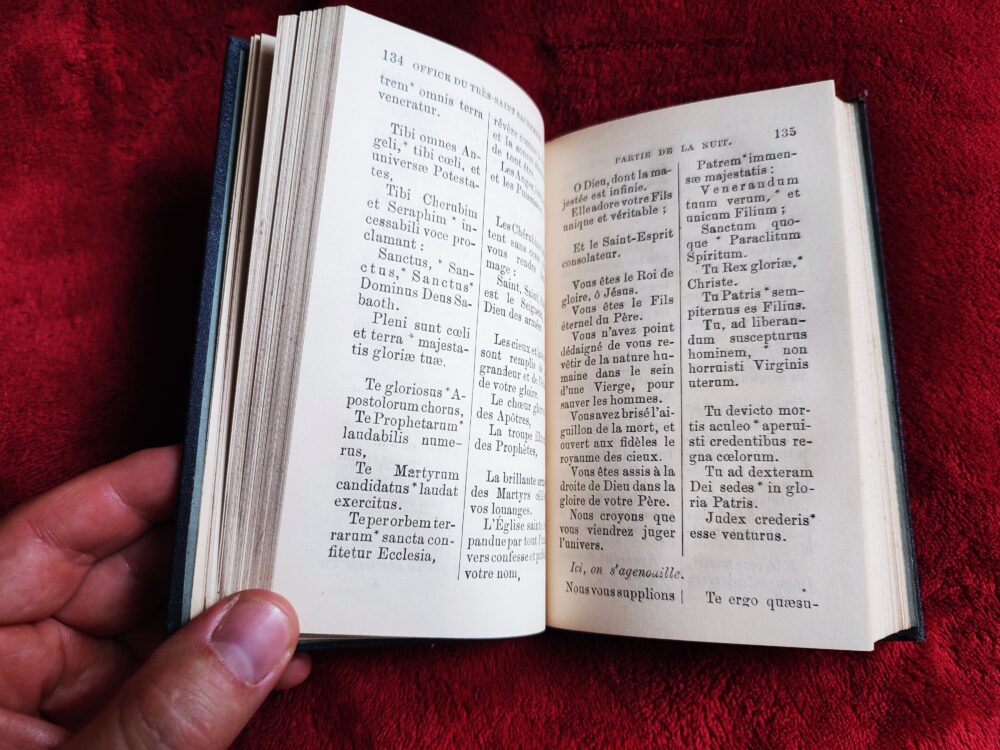 134 OFFICE DU TRÈS-SAINT
trem* omnis terra
veneratur.
Tibi omnes An-
geli,* tibi cœli, et
universæ Potesta-
tes,
Tibi Cherubim
et Seraphim * in-
cessabili voce pro-
clamant :
Sanctus, * San-
ctus,* Sanctus*
Dominus Deus Sa-
baoth.
Pleni sunt cœli
et terra * majesta-
tis gloriæ tuæ.
Te gloriosus * A-
postolorum chorus,
Te Prophetarum*
laudabilis nume-
rus,
Te Martyrum
candidatus * laudat
exercitus.
Te per orbem ter-
rarum* sancta con-
fitetur Ecclesia,
révère
et la
de tout
Les Anges
et les
Les
tent sans
vous rendre
mage :
Saint, Saint,
est le
Dieu des armées.
Les cieux et
sont remplis
grandeur et de
de votre gloire.
Le chœur
des Apôtres,
La troupe
des Prophètes,
La brillante
des Martyrs
vos louanges.
L'Église
pandue par tout
vers confesse et
votre nom,
PARTIE DE LA NUIT. 135
O Dieu, dont la ma-
jestée est infinie.
Elle adore votre Fils
unique et véritable ;
Et le Saint-Esprit
consolateur.
Vous êtes le Roi de
gloire, ô Jésus.
Vous êtes le Fils
éternel du Père.
Vous n'avez point
dédaigné de vous re-
vêtir de la nature hu-
maine dans le sein
d'une Vierge, pour
sauver les hommes.
Vous avez brisé l'ai-
guillon de la mort, et
ouvert aux fidèles le
royaume des cieux.
Vous êtes assis à la
droite de Dieu dans la
gloire de votre Père.
Nous croyons que
vous viendrez juger
l'univers.
Patrem* immen-
sæ majestatis :
Venerandum
tuum verum, * et
unicum Filium ;
Sanctum quo-
que * Paraclitum
Spiritum.
Tu Rex gloriæ,*
Christe.
Tu Patris * sem-
piternus es Filius.
Tu, ad liberan-
dum suscepturus
hominem, * non
horruisti Virginis
uterum.
Tu devicto mor-
tis aculeo * aperui-
sti credentibus re-
gna cœlorum.
Tu ad dexteram
Dei sedes * in glo-
ria Patris.
Judex crederis*
esse venturus.
Ici, on s'agenouille.
Nous vous supplions
Te ergo quæsu-